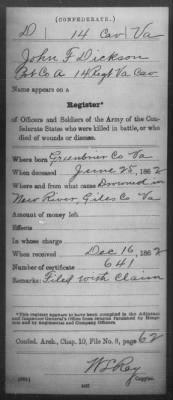 (CONFEDERATE.)
D 14 Cav Va
John F Dickson
Pvt Co A 14 Regt Va Cav
Name appears on a
Register*
of Officers and Soldiers of the Army of the Confederate States who were killed in battle, or who
died of wounds or disease.
Where born Greenbrier Co Va
When deceased June 28, 1862
Where and from what cause Drowned in
New River, Giles Co Va
Amount of money left
Effects
In whose charge
When received Dec 16, 1862
Number of certificate 641
Remarks: Filed with Claim
*This register appears to have been compiled in the Adjutant
and Inspector General's Office from returns furnished by Hospitals
and by Regimental and Company Officers.
Confed. Arch., Chap. 10, File No. 8, page 62
Copyist.